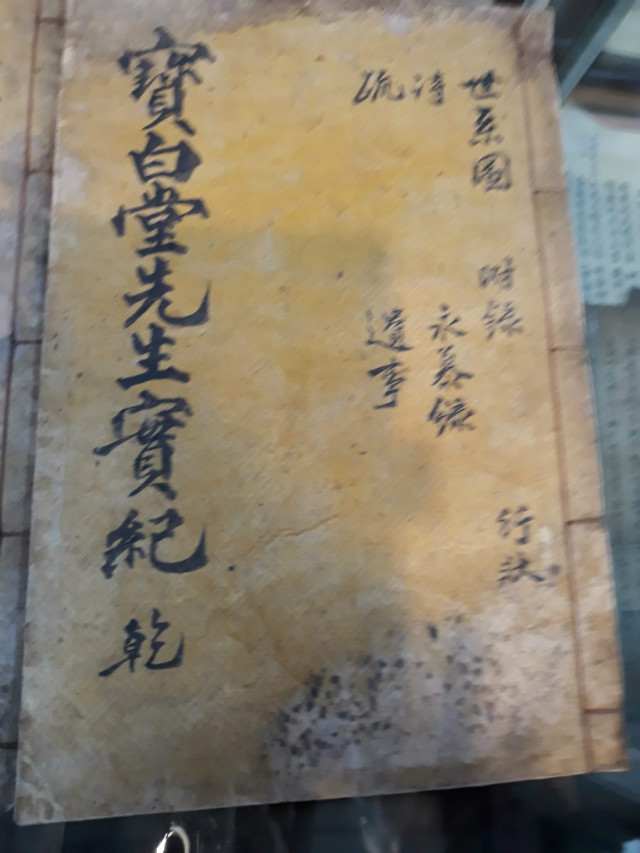 世系圖 附錄 行狀
詩 永慕錄
疏 遺事
寶白堂先生實紀 乾